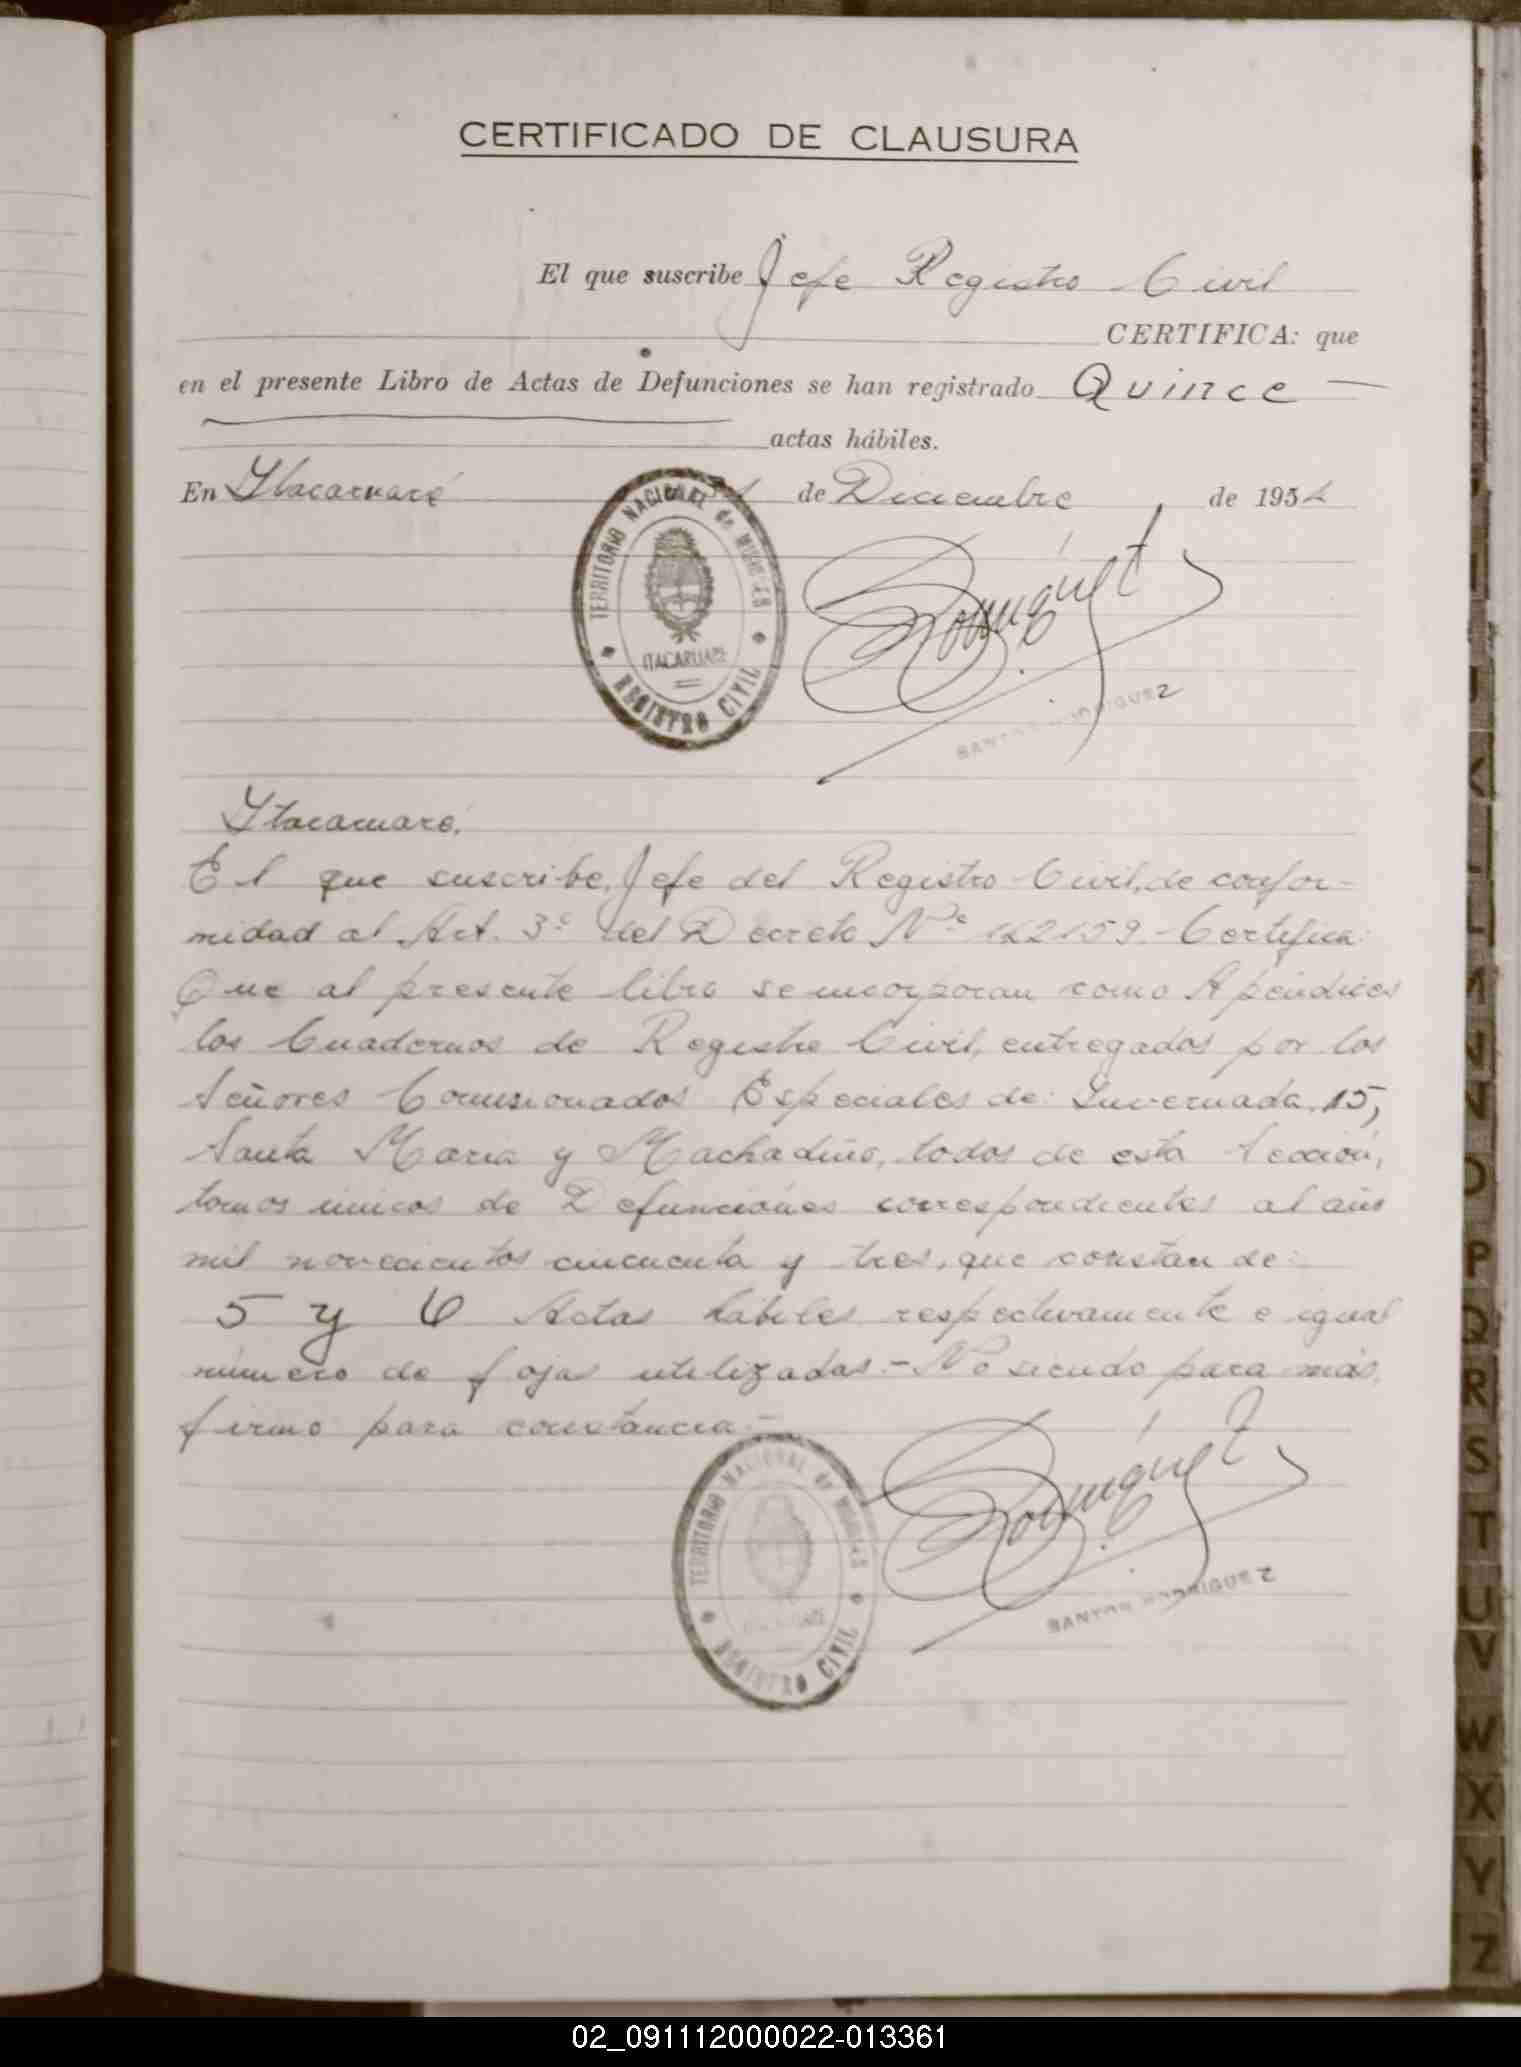 CERTIFICADO DE CLAUSURA
El que suscribe Jefe Registro Civil
CERTIFICA: que
en el presente Libro de Actas de Defunciones se han registrado Quince —
actas hábiles.
En Ytacaruaré 31 de Diciembre de 195
TERRITORIO NACIONAL de MISIONES
ITACARUARE
REGISTRO CIVIL
SANTOS RODRIGUEZ
Ytacaruaré,
El que suscribe, Jefe del Registro Civil, de confor-
midad al Art. 3º del Decreto Nº 142159.- Certifica:
Que al presente libro se incorporan como Apéndices
los Cuadernos de Registro Civil, entregados por los
Señores Comisionados Especiales de: Invernada, 15,
Santa María y Machadiño, todos de esta Sección,
tomos únicos de Defunciónes correspondientes al año
mil novecientos cincuenta y tres, que constan de:
5 y 6 Actas hábiles respectivamente e igual
número de fojas utilizadas.- No siendo para más,
firmo para constancia.-
TERRITORIO NACIONAL de MISIONES
REGISTRO CIVIL
SANTOS RODRIGUEZ
K
L
M
N
O
P
Q
R
S
T
U
V
W
X
Y
Z
02_091112000022-013361